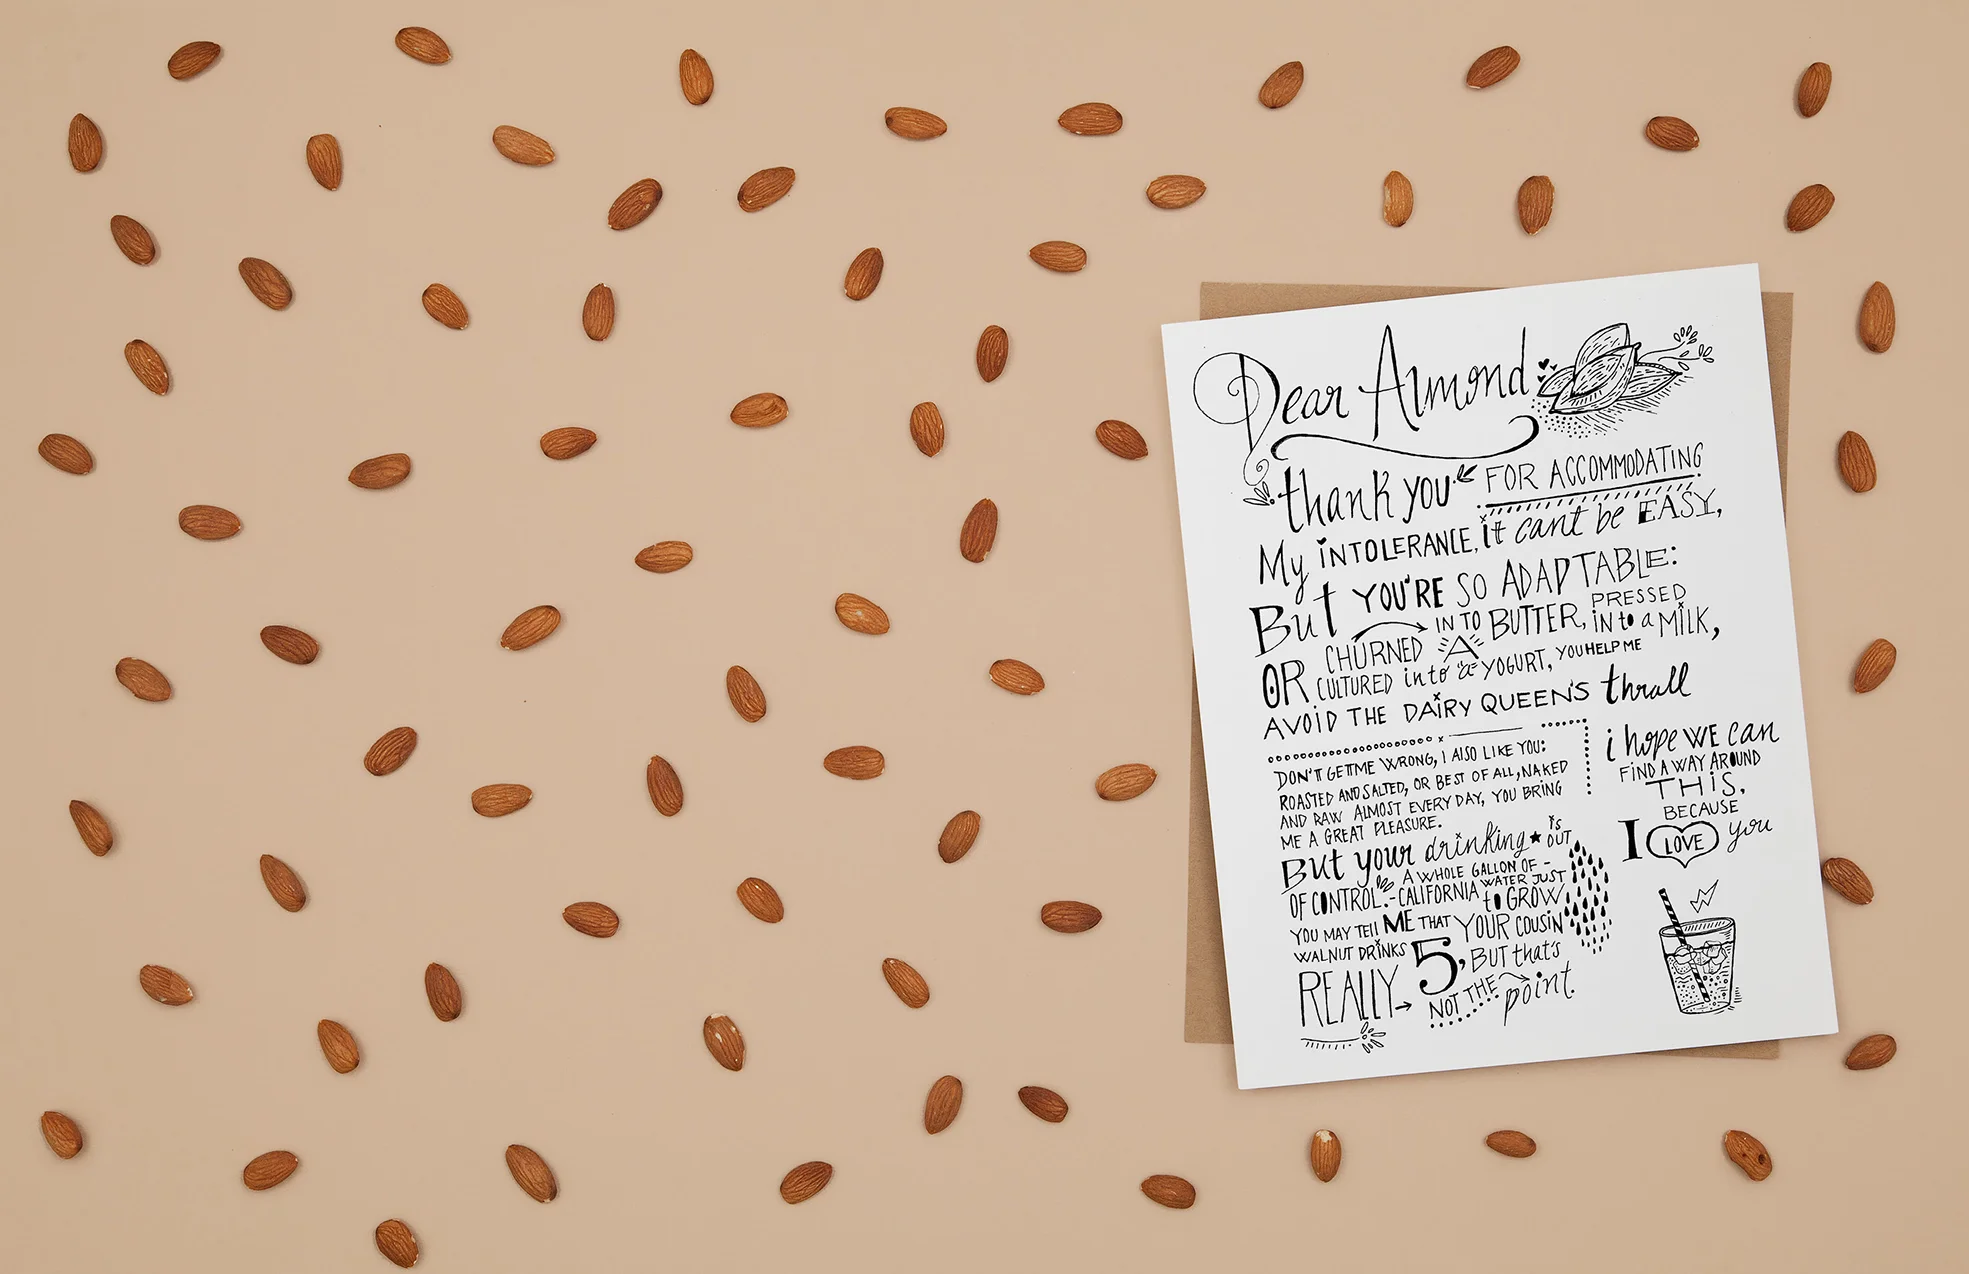 Dear Almond
thank you FOR ACCOMMODATING
My INTOLERANCE, it can't be EASY,
But YOU'RE SO ADAPTABLE:
CHURNED IN TO A BUTTER, PRESSED INto a MILK,
OR CULTURED into a YOGURT, YOU HELP ME
AVOID THE DAIRY QUEEN'S thrall
DON'T GET ME WRONG, I ALSO LIKE YOU:
ROASTED AND SALTED, OR BEST OF ALL, NAKED
AND RAW ALMOST EVERY DAY, YOU BRING
ME A GREAT PLEASURE.
But your drinking IS OUT
OF CONTROL.-A WHOLE GALLON OF-
CALIFORNIA WATER JUST to GROW
YOU MAY TEll ME THAT YOUR COUSIN
WALNUT DRINKS 5, BUT that's
REALLY NOT THE point.
i hope WE can
FIND A WAY AROUND
THIS,
BECAUSE
I LOVE you